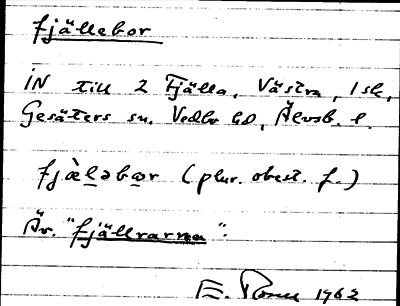 fjällebor
IN till 2 Fjälla, Västra, 1 sk,
Gesäters sn. Vedbo hd, Älvsb. l.
fjæ̀ləbər (plur. obest. f.)
Äv. "fjällrarna".
E. 1962